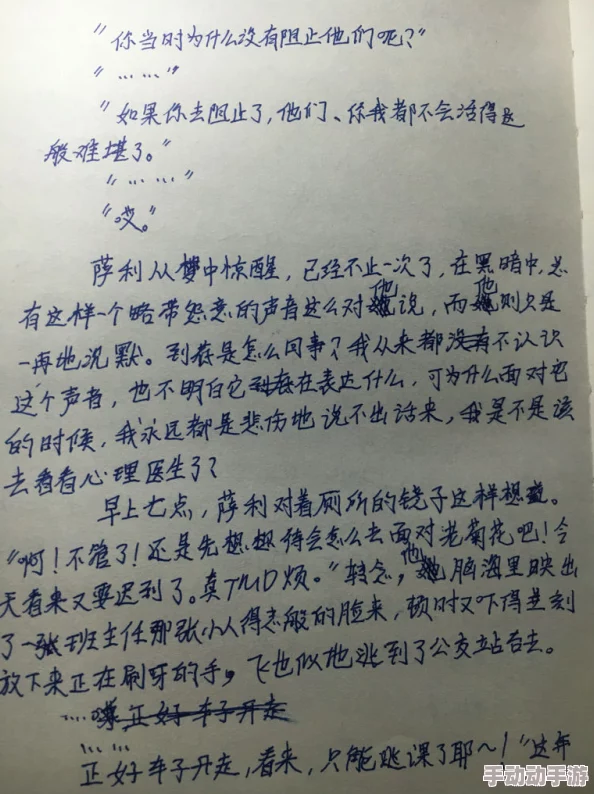 “你当时为什么没有阻止他们呢？”
“……”
“如果你去阻止了，他们、你我都不会活得这
般难堪了。”
“……”
“哎。”
萨利从梦中惊醒，已经不止一次了，在黑暗中，总
有这样一个略带怨意的声音这么对他说，而他则只是
一再地沉默。到底是怎么回事？我从来都不认识
这个声音，也不明白它在表达什么，可为什么面对它
的时候，我永远都是悲伤地说不出话来，我是不是该
去看看心理医生了？
早上七点，萨利对着厕所的镜子这样想。
“啊！不管了！还是先想想待会怎么去面对老菊花吧！今
天看来又要迟到了。真TMD烦。”转念，他脑海里映出
了一张班主任那张小人得志般的脸来，顿时又吓得立刻
放下来正在刷牙的手，飞也似地逃到了公交站台去。
……正好车子开走
……
正好车子开走，看来，只能逃课了耶～！”这年
手动动手游